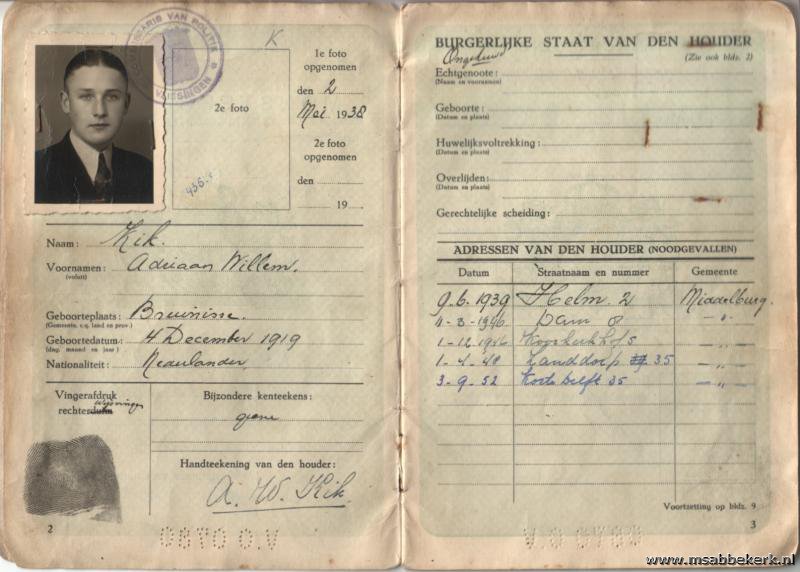 COMMISSARIS VAN POLITIE
VLISSINGEN
K
1e foto
opgenomen
den 2
Mei 1938
2e foto
2e foto
opgenomen
den
19
Naam: Kik.
Voornamen: Adriaan Willem.
(voluit)
Geboorteplaats: Bruinisse.
(Gemeente, c.q. land en prov.)
Geboortedatum: 4 December 1919
(dag, maand en jaar)
Nationaliteit: Nederlander
Vingerafdruk
rechterduim wijsvinger
Bijzondere kenteekens:
geene
Handteekening van den houder:
A. W. Kik
2
V.O 0780
BURGERLIJKE STAAT VAN DEN HOUDER
Ongehuwd
(Zie ook bldz. 2)
Echtgenoote:
(Naam en voornamen)
Geboorte:
(Datum en plaats)
Huwelijksvoltrekking:
(Datum en plaats)
Overlijden:
(Datum en plaats)
Gerechtelijke scheiding:
ADRESSEN VAN DEN HOUDER (NOODGEVALLEN)
Datum Straatnaam en nummer Gemeente
9.6.1939 Helm 2 Middelburg.
4-3-1946 Dam 8 - " -
1-12-1946 5 - " -
1-4-48 Zanddorp 35 - " -
3-9-52 Korte Delft 35 - " -
Voortzetting op bldz. 9
3
www.msabbekerk.nl